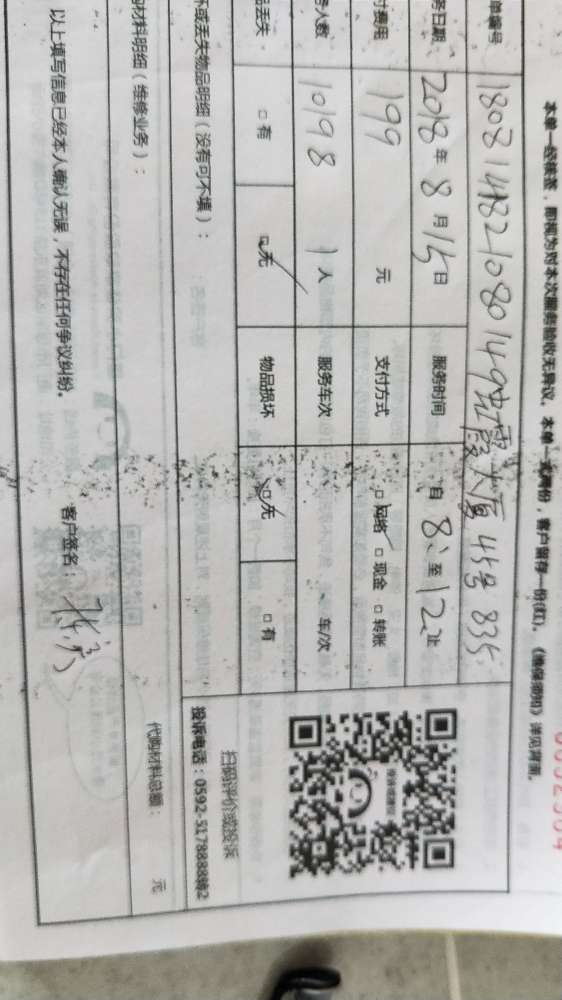 本单一经核签，即视为对本次服务验收无异议。本单一式两份，客户留存一份(红)。《维保须知》详见背面。
单编号 180814182108014 霞大厦 45号 835
务日期 2018年8月15日 服务时间 自 8: 至 12 止
付费用 199 元 支付方式 □网络 □现金 □转账
务人数 10198 1人 服务车次 车/次
品丢失 □有 □无 物品损坏 □无 □有
坏或丢失物品明细（没有可不填）：
扫码评价或投诉
投诉电话：0592-5178888转2
购材料明细（维修业务）：
代购材料总额： 元
以上填写信息已经本人确认无误，不存在任何争议纠纷。 客户签名：